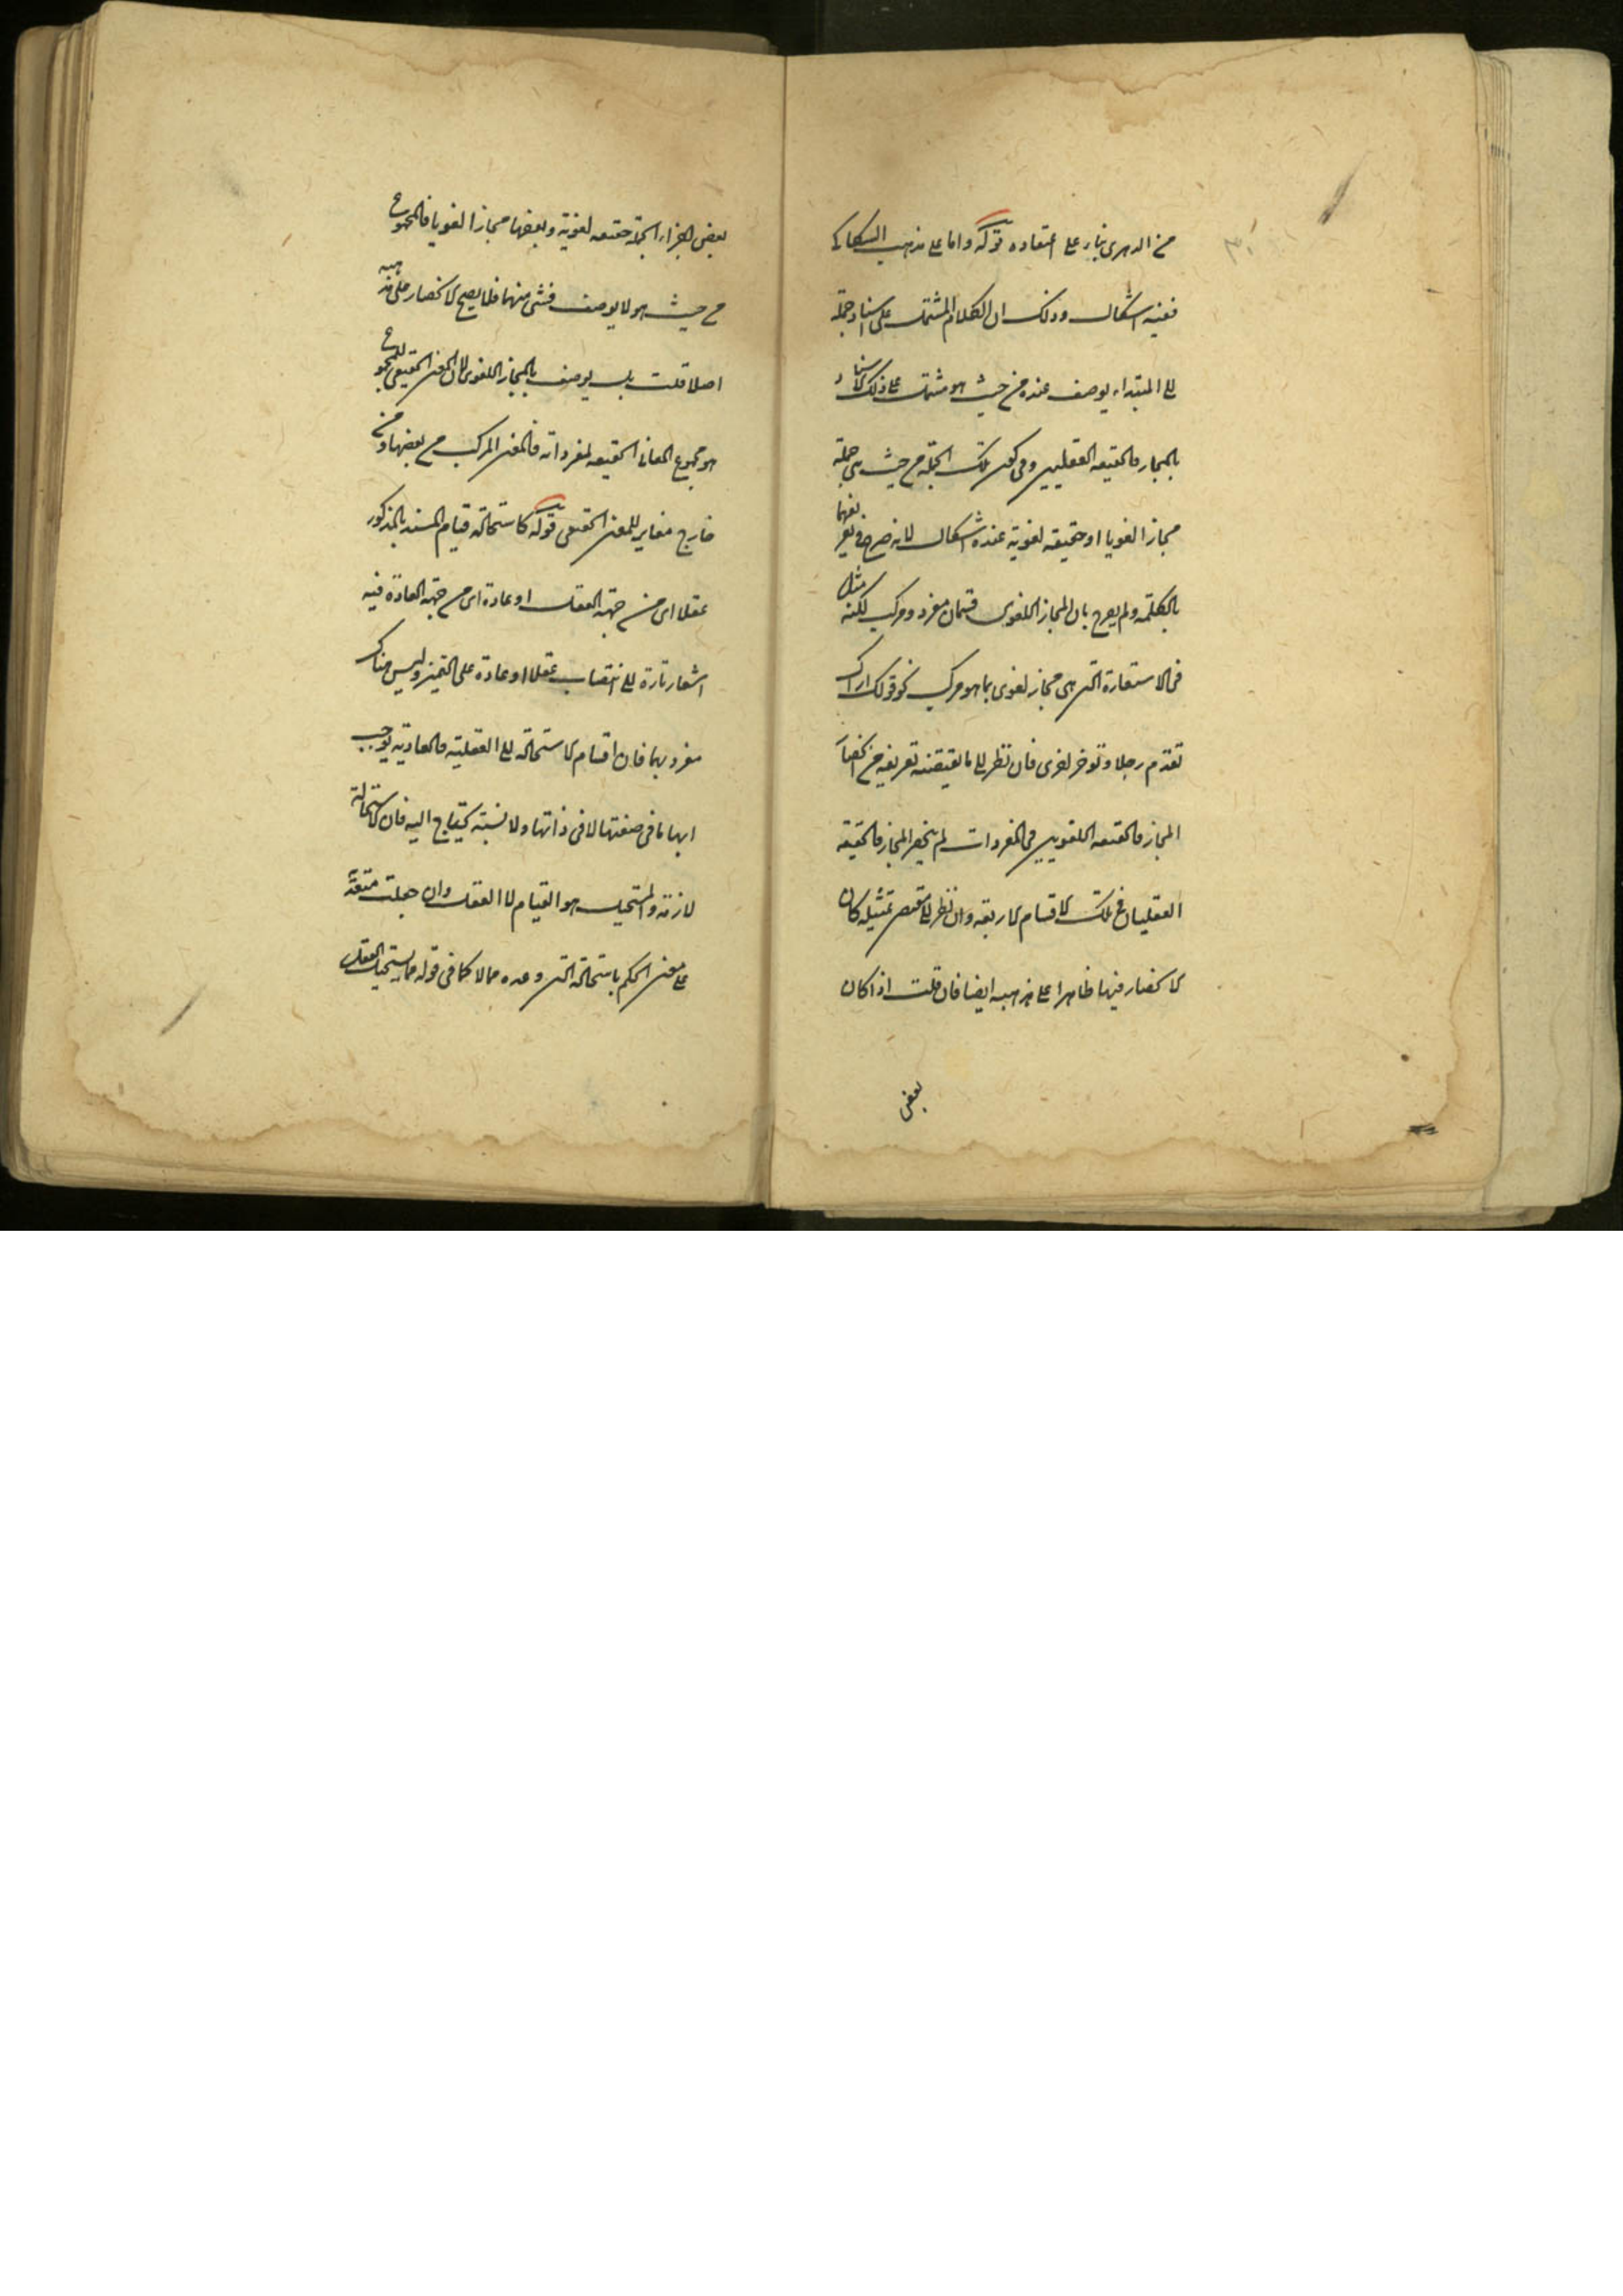 من الدهرى بناء على اعتقاده قوله واما على مذهب السكاكى
ففيه اشكال وذلك ان الكلام المشتمل على اسناد جملة
الى المبتداء يوصف عنده من حيث هو مشتمل على ذلك الاسناد
بالمجاز والحقيقه العقليين وفى كون تلك الجملة من حيث هى جملة
مجازا لغويا او حقيقه لغوية عنده اشكال لانه صرح فى تعريفهما
بالكلمة ولم يصرح بان المجاز اللغوى قسمان مفرد ومركب لكنه مثل
فى الاستعارة التى هى مجاز لغوى بما هو مركب نحو قولك اراك
تقدم رجلا وتوخر اخرى فان نظر الى ما يقتضيه تعريفه من
المجاز والحقيقه اللغويين فى المفردات لم ينحصر المجاز والحقيقة
العقليان فى تلك الاقسام الاربعه وان نظر الى تمثيله كان
الانحصار فيها ظاهرا على مذهبه ايضا فان قلت اذا كان
بعض
بعض اجزاء الجملة حقيقه لغوية وبعضها مجازا لغويا فالمجموع
من حيث هو لا يوصف بشىء منهما فلا يصح الانحصار على مذهبه
اصلا قلت بل يوصف بالمجاز اللغوى لان المعنى الحقيقى للمجموع
هو مجموع المعانى الحقيقه لمفرداته فالمعنى المركب من بعضها ومن
خارج مغاير للمعنى الحقيقى قوله كاستحالة قيام المسند بالمذكور
عقلا اى من جهة العقل او عادة اى من جهة العادة فيه
اشعار تارة الى انتصاب عقلا او عادة على التميز وليس هناك
مفرد بهما فان اقسام الاستحالة الى العقلية والعادية يوجب
ابهاما فى صفتها لا فى ذاتها ولا نسبة يحتاج اليه فان الاستحالة
لازمة والمستحيل هو القيام لا العقل وان جعلت متعدية
على معنى الحكم باستحالة الشىء وعده محالا كما فى قوله مما يستحيله العقل